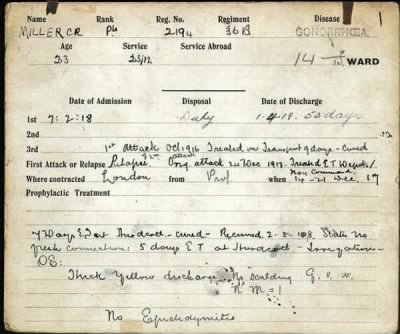 Name Rank Reg. No. Regiment Disease
MILLER CR Pte 2194 36B GONORRHŒA. 1
Age Service Service Abroad
23 23/12 14 WARD
Date of Admission Disposal Date of Discharge
1st 7:2:18 Duty 1.4.18. 53 days
2nd
3rd 1st Attack Oct 1916 Treated on Transport 9 days - cured
First Attack or Relapse Relapse Orig. attack 24 Dec 1917. Treated E T
Where contracted London from Prof 14-21 Dec. 17
Prophylactic Treatment
7 days E.T at Hurdcott - cured - Recurred 2-2-18, States no
fresh connection: 5 days E T at Hurdcott - Irrigation -
O E:
Thick yellow discharge No scalding G. v. w.
N M = 1
No Epididymitis